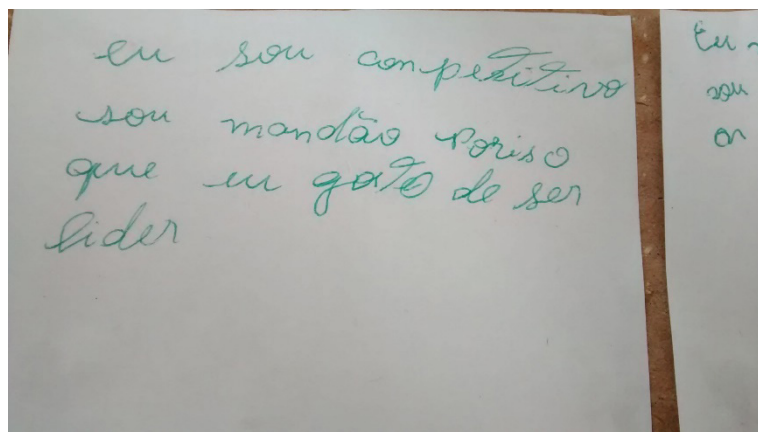 eu sou conpetitivo
sou mandão poriso
que eu goto de ser
lider
Eu
sou